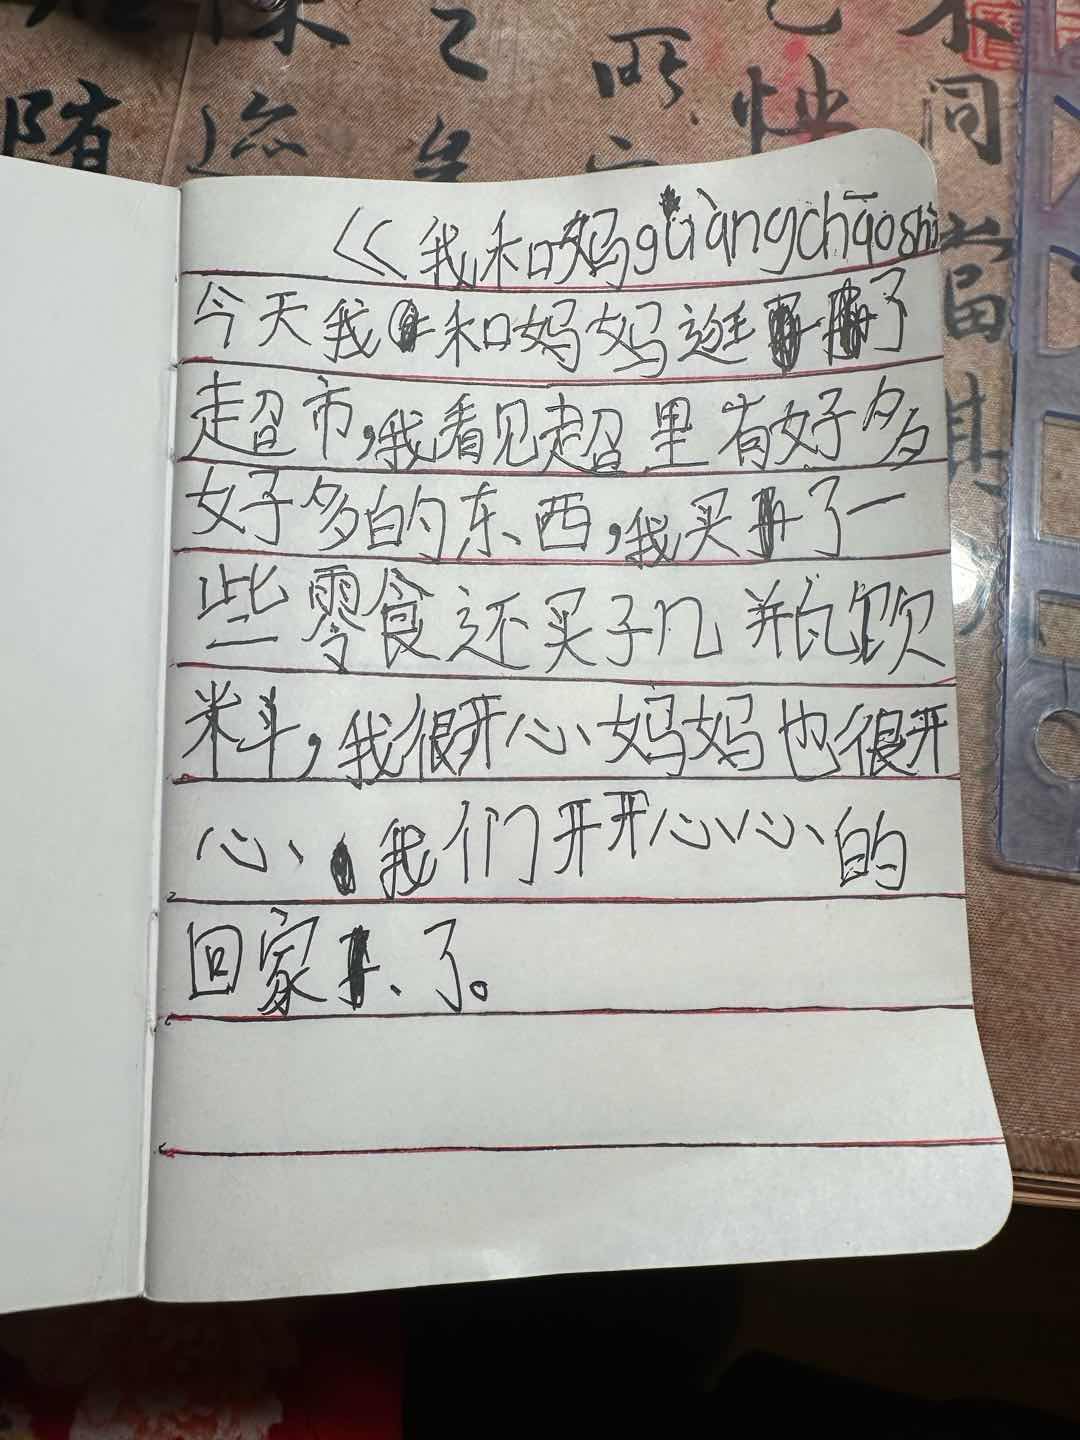 《我和妈guàngchāoshì
今天我和妈妈逛了
超市,我看见超里有好多
好多的东西,我买了一
些零食还买了几瓶饮
料,我很开心、妈妈也很开
心、我们开开心心的
回家了。